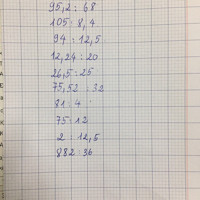 95,2 : 68
105 : 8,4
94 : 12,5
12,24 : 20
26,5 : 25
75,52 : 32
81 : 4
75 : 12
2 : 12,5
882 : 36